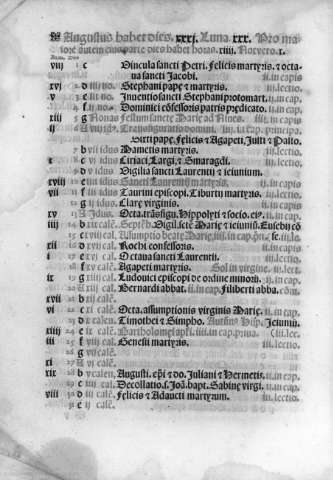 Augustus habet dies. xxxj. Luna. xxx. Pro ma
iore autem eius parte dies habet horas. xiiii. Nox vero. x.
viij c Vincula sancti Petri. Felicis martyris. & octa
ua sancti Jacobi. ii. in capis
xvj d iiii no. Stephani pape & martyris. iii. lectio.
v e iii no. Inuentio sancti Stephani protomar. ii. in cap.
f ii no. Dominici cōfessoris patris predicato. ii. in cap.
xiij g Nonas Festum sanctę Marię ad Niues. iii. in cap.
ij A viij id. Transfiguratio domini. iii. in cap. principa.
Sixti pape, Felicis & Agapeti, Justi & Pasto.
b vij idus Mametis martyris. iii. lectio.
x c vi idus Ciriaci, Largi, & Smaragdi. iii. lectio.
d v idus Vigilia sancti Laurentii & ieiunium.
xviij e iiii idus Sancti Laurentii martyris. iii. in cap.
vij f iii idus Taurini episcopi. Tiburtij martyris. ii. in cap.
g ij idus Clarę virginis. ii. in cap.
xv A Idus. Octa. trāsfigu. Hippolyti & socio. eiꝰ. ii. in cap.
iiij b xix cal. Septēb. Vigil. sctę Marię & ieiuniū. Eusebij cō
c xviij cal. Assumptio beatę Marię. iiii. in cap. pri. fe. iii. lec.
xij d xvij cal. Rochi confessoris. ii. in cap.
i e xvj cal. Octaua sancti Laurentii. iii. lectio.
f xv cal. Agapeti martyris. Sol in virgine. iii. lectio.
ix g xiiij cal. Ludouici episcopi de ordine minorū. ii. in cap.
A xiij cal. Bernardi abbat. ii. in cap. Filiberti abba. cōme.
xvij b xij calē.
vi c xj cal. Octa. assumptionis virginis Marię. ii. in cap.
d x cal. Timothei & Simpho. Ieiuniū.
xiiij e ix cal. Bartholomęi apl'i. iii. in cap. prima. iii. lect.
iij f viij cal. Genesii martyris. iii. lectio.
g vij calē.
xi A vj calē.
xix b v calen. Augusti. epi & do. Juliani & Hermetis. ii. in cap
c iiij cal. Decollatio. s. Joā. bapt. Sabinę virgi. ii. in cap.
viij d iij cal. Felicis & Adaucti martyrum. iii. lectio.
e ij calē.